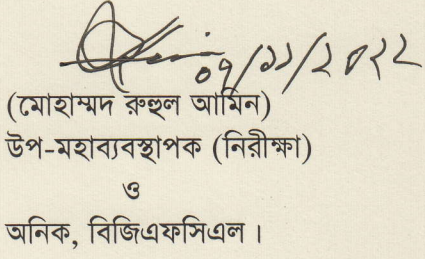 ০৭/১১/২০২২
(মোহাম্মদ রুহুল আমিন)
উপ-মহাব্যবস্থাপক (নিরীক্ষা)
ও
অনিক, বিজিএফসিএল।